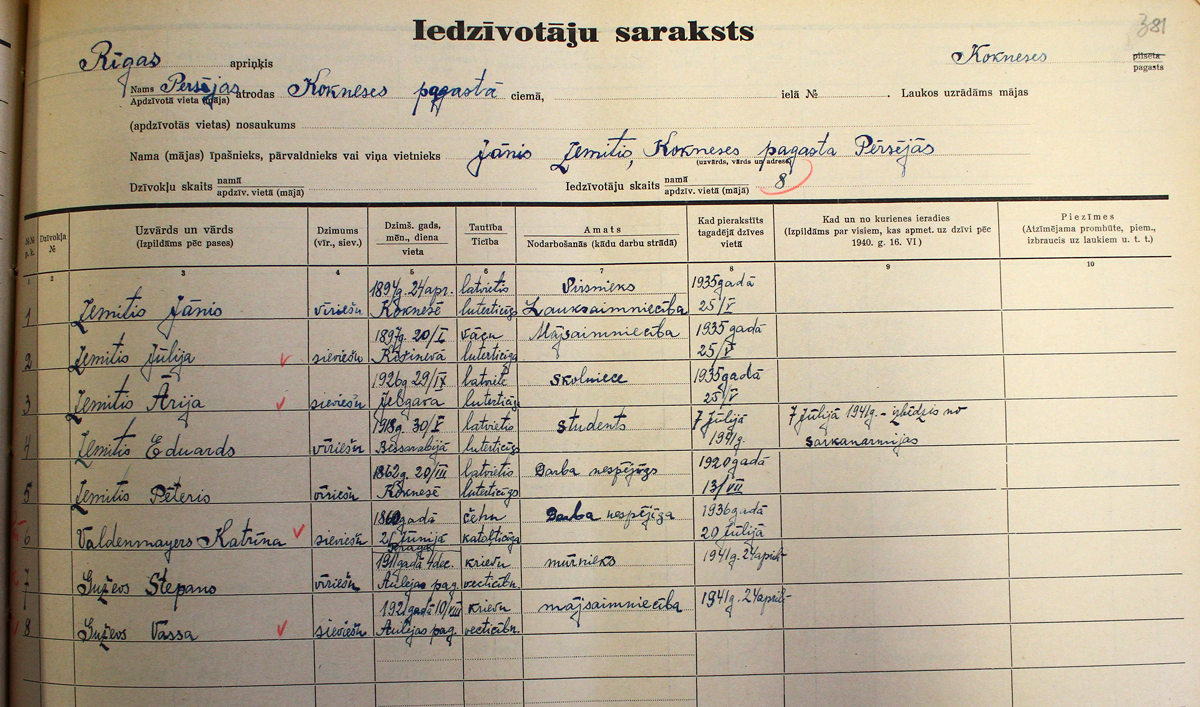 381
Iedzīvotāju saraksts
Rīgas apriņķis Kokneses pilsēta pagasts
Nams Apdzīvotā vieta (māja) Pērsējas atrodas Kokneses pagastā ciemā, ielā № . Laukos uzrādāms mājas
(apdzīvotās vietas) nosaukums
Nama (mājas) īpašnieks, pārvaldnieks vai viņa vietnieks Jānis Zemītis, Kokneses pagasta Pērsējās
(uzvārds, vārds un adrese)
Dzīvokļu skaits namā apdzīv. vietā (mājā) Iedzīvotāju skaits namā apdzīv. vietā (mājā) 8
№№ p. k.
Dzīvokļa №
Uzvārds un vārds (Izpildāms pēc pases)
Dzimums (vīr., siev.)
Dzimš. gads, mēn., diena vieta
Tautība Ticība
Amats Nodarbošanās (kādu darbu strādā)
Kad pierakstīts tagadējā dzīves vietā
Kad un no kurienes ieradies (Izpildāms par visiem, kas apmet. uz dzīvi pēc 1940. g. 16. VI)
Piezīmes (Atzīmējama prombūte, piem., izbraucis uz laukiem u. t. t.)
1 2 3 4 5 6 7 8 9 10
1894g. 24 apr. latvietis Pirsnieks 1935 gadā
1 Zemītis Jānis vīriešu Koknesē luterticīgs Lauksaimniecība 25/V
1897g. 20/I vācu Mājsaimniecība 1935 gadā
2 Zemītis Jūlija sieviešu luterticīga 25/V
1926g. 29/IX latviete skolniece 1935 gadā
3 Zemītis Ārija sieviešu Jelgavā luterticīga 25/V
1918g. 30/V latvietis students 7 Jūlijā 7 Jūlijā 1941g. - izbēdzis no
4 Zemītis Eduards vīriešu Bessarabijā luterticīgs 1941g. sarkanarmijas
1862g. 20/III latvietis Darba nespējīgs 1920 gadā
5 Zemītis Pēteris vīriešu Koknesē luterticīgs 13/VII
1860 gadā čehu Darba nespējīga 1936 gadā
6 Valdenmayers Katrīna sieviešu Jūnijā Prāgā katoļticīga 20 Jūlijā
1911 gadā 4 dec. krievu mūrnieks 1941g. 24 aprilī
7 Guževs Stepans vīriešu Aulejas pag. vecticībn.
1921 gadā 10/VIII krievu mājsaimniecība 1941g. 24 aprilī
8 Guževs Vassa sieviešu Aulejas pag. vecticībn.